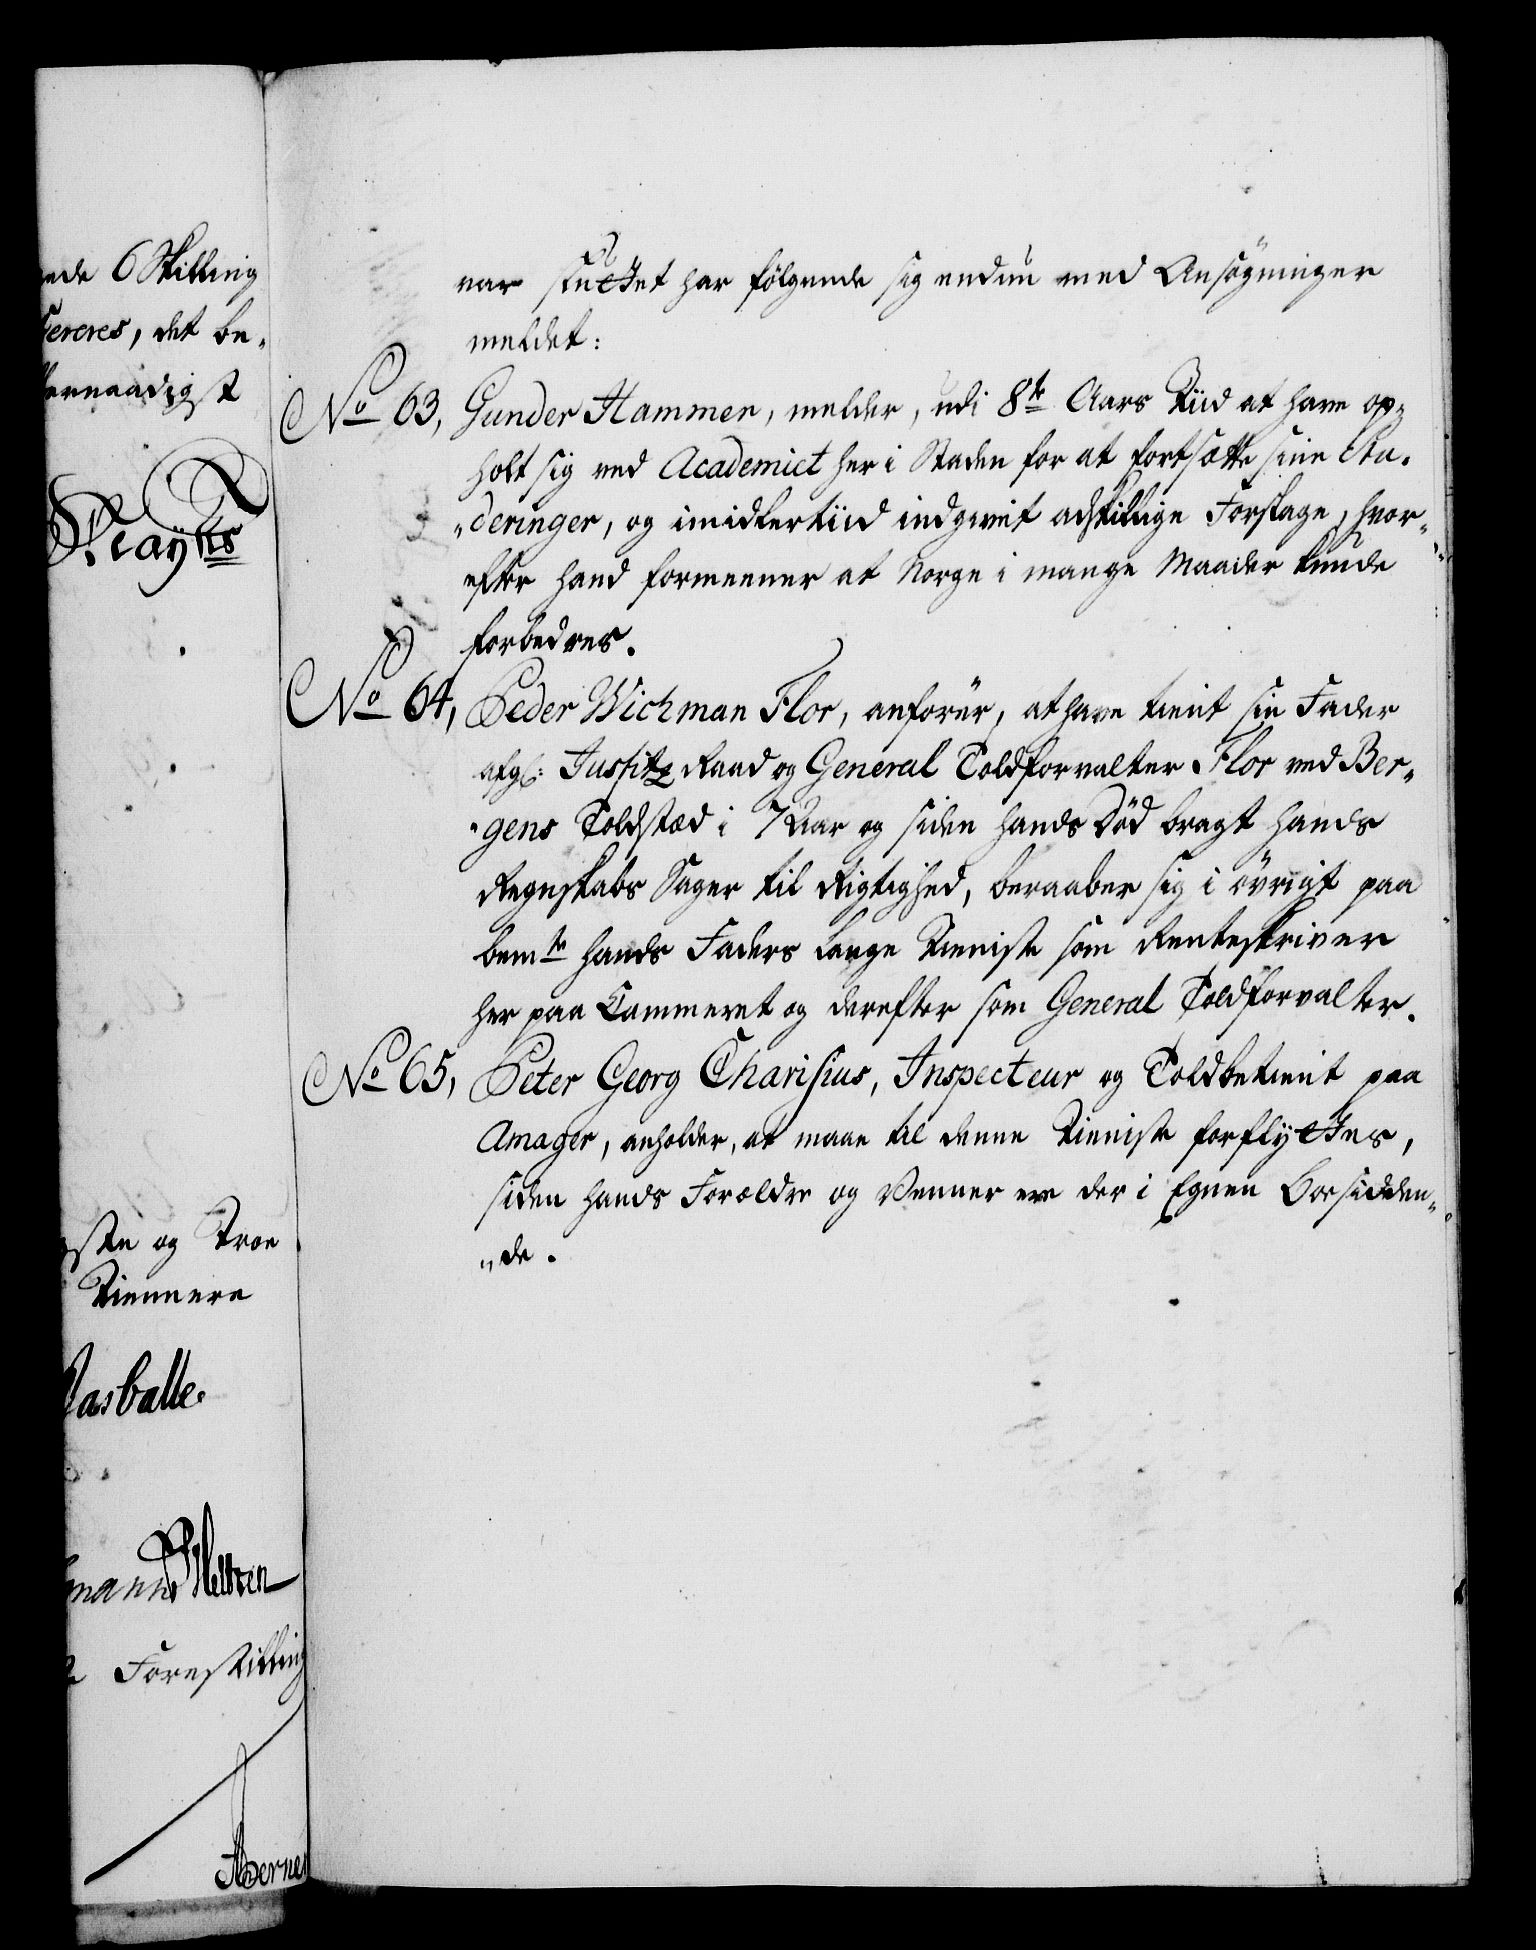 nde 6 Skilling
sereres, det be„
lernaadigst
ste og Troe
Tiennere
Forestilling
var sluttet har følgende sig endnu med Ansøgninger
meldet:
No 63, Gunder Hammer, melder, udi 8te Aars Tiid at have op„
holt sig ved Academiet her i Staden for at fortsætte sine Stu„
„deringer, og imidlertiid indgivet adskillige Forslage, hvor„
efter hand formeener at Norge i mange Maader kunde
forbedres.
No 64, Peder Wichman Flor, anfører, at have tient sin Fader
afg: Justitz Raad og General Toldforvalter Flor ved Ber„
„gens Toldsted i 7 Aar og siden hands Død bragt hands
Regnskabs Sager til Rigtighed, beraaber sig i øvrigt paa
bemte hands Faders lange Tieniste som Renteskriver
her paa Cammeret og derefter som General Toldforvalter.
No 65, Peter Georg Charisius, Inspecteur og Toldbetient paa
Amager, anholder, at maae til denne Tieniste forflyttes,
siden hands Forældre og Venner ere der i Egnen Boesidden„
„de.